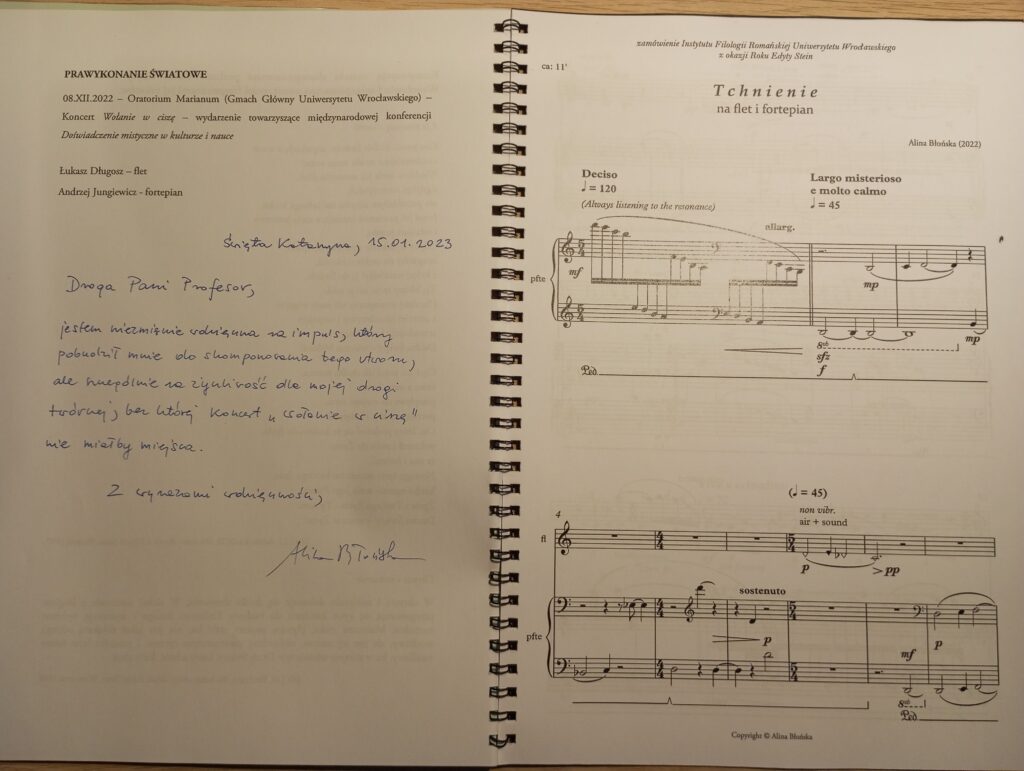 PRAWYKONANIE ŚWIATOWE
08.XII.2022 – Oratorium Marianum (Gmach Główny Uniwersytetu Wrocławskiego) –
Koncert Wołanie w ciszę – wydarzenie towarzyszące międzynarodowej konferencji
Doświadczenie mistyczne w kulturze i nauce
Łukasz Długosz – flet
Andrzej Jungiewicz - fortepian
Święta Katarzyna, 15.01.2023
Droga Pani Profesor,
jestem niezmiernie wdzięczna za impuls, który
pobudził mnie do skomponowania tego utworu,
ale szczególnie za życzliwość dla mojej drogi
twórczej, bez której koncert „Wołanie w ciszę"
nie miałby miejsca.
Z wyrazami wdzięczności,
Alina Błońska
zamówienie Instytutu Filologii Romańskiej Uniwersytetu Wrocławskiego
z okazji Roku Edyty Stein
ca: 11'
Tchnienie
na flet i fortepian
Alina Błońska (2022)
Deciso
♩ = 120
(Always listening to the resonance)
allarg.
Largo misterioso
e molto calmo
♩ = 45
pfte
mf
mp
mp
8vb
sfz
f
Ped.
(♩ = 45)
non vibr.
air + sound
4
fl
5/4
4/4
5/4
p
> pp
sostenuto
pfte
4/4
5/4
p
mf
p
4/4
5/4
8vb
Ped.
Copyright © Alina Błońska